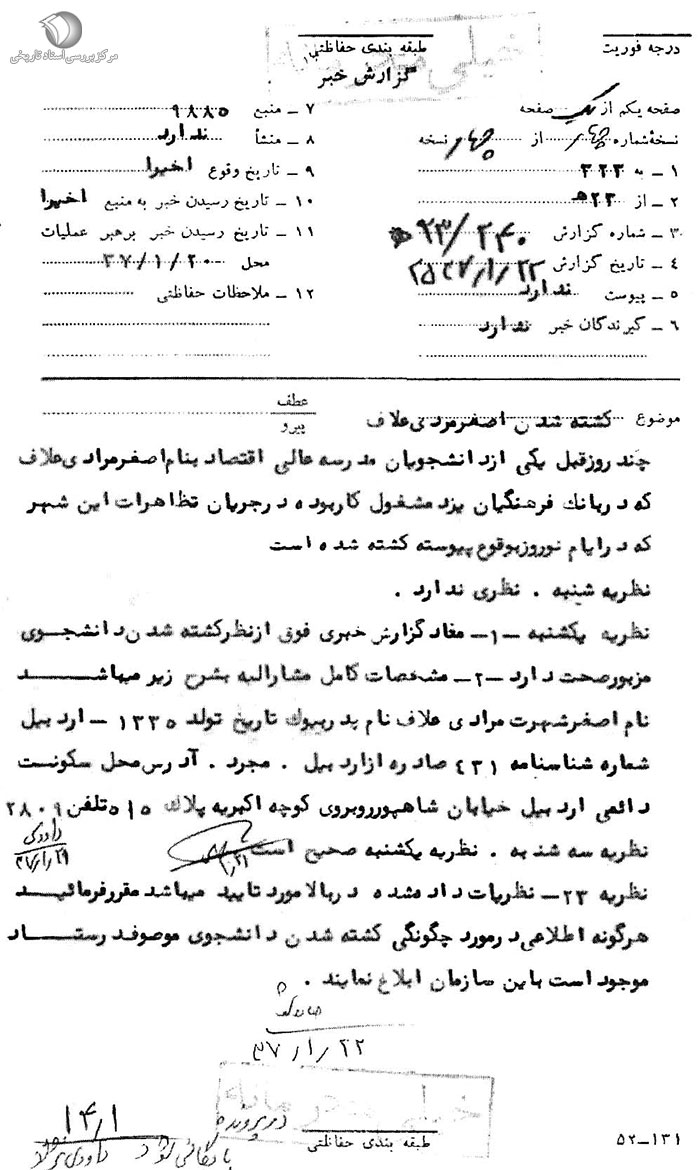 مرکز بررسی اسناد تاریخی
درجه فوریت
طبقه بندی حفاظتی
خیلی محرمانه
گزارش خبر
صفحه یکم از یک صفحه
نسخهٔ شماره چهار از چهار نسخه
۱ ـ به ۳۲۳
۲ ـ از ۲۳ ﻫ
۳ ـ شماره گزارش ۲۴۰/ ۲۳ ﻫ
۴ ـ تاریخ گزارش ۲۵۳۷/۱/۲۲
۵ ـ پیوست ندارد
۶ ـ گیرندگان خبر ندارد
۷ ـ منبع ۹۸۸۵
۸ ـ منشأ ندارد
۹ ـ تاریخ وقوع اخیرا
۱۰ ـ تاریخ رسیدن خبر به منبع اخیرا
۱۱ ـ تاریخ رسیدن خبر برهبر عملیات
محل ۳۷/۱/۲۰
۱۲ ـ ملاحظات حفاظتی
موضوع کشته شدن اصغرمرادی علاف
عطف
پیرو
چند روز قبل یکی ازدانشجویان مدرسه عالی اقتصاد بنام اصغر مرادی علاف
که دربانک فرهنگیان یزد مشغول کاربوده درجریان تظاهرات این شهر
که درایام نوروزبوقوع پیوسته کشته شده است
نظریه شنبه . نظری ندارد .
نظریه یکشنبه ـ۱ـ مفاد گزارش خبری فوق ازنظرکشته شدن دانشجوی
مزبورصحت دارد ـ۲ـ مشخصات کامل مشارالیه بشرح زیر میباشد
نام اصغرشهرت مرادی علاف نام پدربیوک تاریخ تولد ۱۳۳۵ ـ اردبیل
شماره شناسنامه ۴۳۱ صادره ازاردبیل . مجرد . آدرس محل سکونت
دائمی اردبیل خیابان شاهپورروبروی کوچه اکبریه پلاک ۵۱۵ تلفن ۲۸۰۹
نظریه سه شنبه . نظریه یکشنبه صحیح است
داودی
۳۷/۱/۲۱
نظریه ۲۳ـ نظریات داده شده دربالا مورد تایید میباشد مقررفرمائید
هرگونه اطلاعی درمورد چگونگی کشته شدن دانشجوی موصوفدرستاد
موجود است باین سازمان ابلاغ نمایند .
۳۷/۱/۲۲
خیلی محرمانه
در پرونده
بایگانی شود
۱۴/۱
طبقه بندی حفاظتی
۱۳۱ـ۵۲